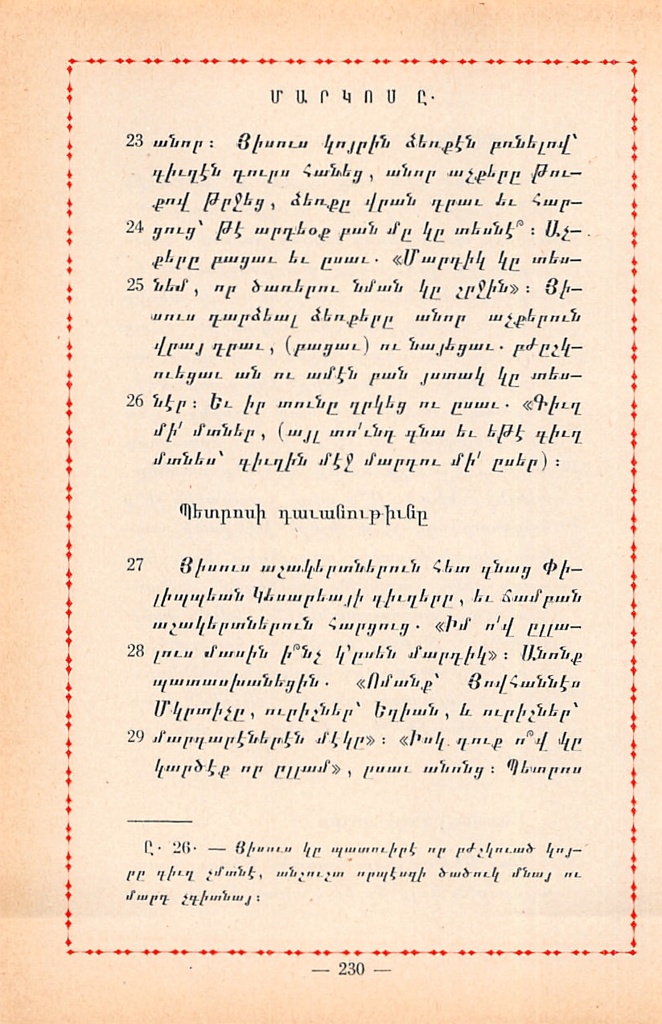 ՄԱՐԿՈՍ Ը․
23 անոր։ Յիսուս կոյրին ձեռքէն բռնելով՝
գիւղէն դուրս հանեց, անոր աչքերը թու–
քով թրջեց, ձեռքը վրան դրաւ եւ հար–
24 ցուց՝ թէ արդեօք բան մը կը տեսնէ՞։ Աչ–
քերը բացաւ եւ ըսաւ․ «Մարդիկ կը տես–
25 նեմ, որ ծառերու նման կը շրջին»։ Յի–
սուս դարձեալ ձեռքերը անոր աչքերուն
վրայ դրաւ, (բացաւ) ու նայեցաւ․ բժըշկ–
ուեցաւ ան ու ամէն բան յստակ կը տես–
26 նէր։ Եւ իր տունը ղրկեց ու ըսաւ․ «Գիւղ
մի՛ մտներ, (այլ տո՛ւնդ գնա եւ եթէ գիւղ
մտնես՝ գիւղին մէջ մարդու մի՛ ըսեր)։
Պետրոսի դաւանութիւնը
27 Յիսուս աշակերտներուն հետ գնաց Փի–
լիպպեան Կեսարեայի գիւղերը, եւ ճամբան
աշակերտներուն հարցուց․ «Իմ ո՛վ ըլլա–
28 լուս մասին ի՞նչ կ՚ըսեն մարդիկ»։ Անոնք
պատասխանեցին․ «Ոմանք՝ Յովհաննէս
Մկրտիչը, ուրիշներ՝ Եղիան, և ուրիշներ՝
29 մարդարէներէն մէկը»։ «Իսկ դուք ո՞վ կը
կարծէք որ ըլլամ», ըսաւ անոնց։ Պետրոս
Ը․ 26․ — Յիսուս կը պատուիրէ որ բժշկուած կոյ–
րը գիւղ չմտնէ, անշուշտ որպէսզի ծածուկ մնայ ու
մարդ չգիտնայ։
— 230 —